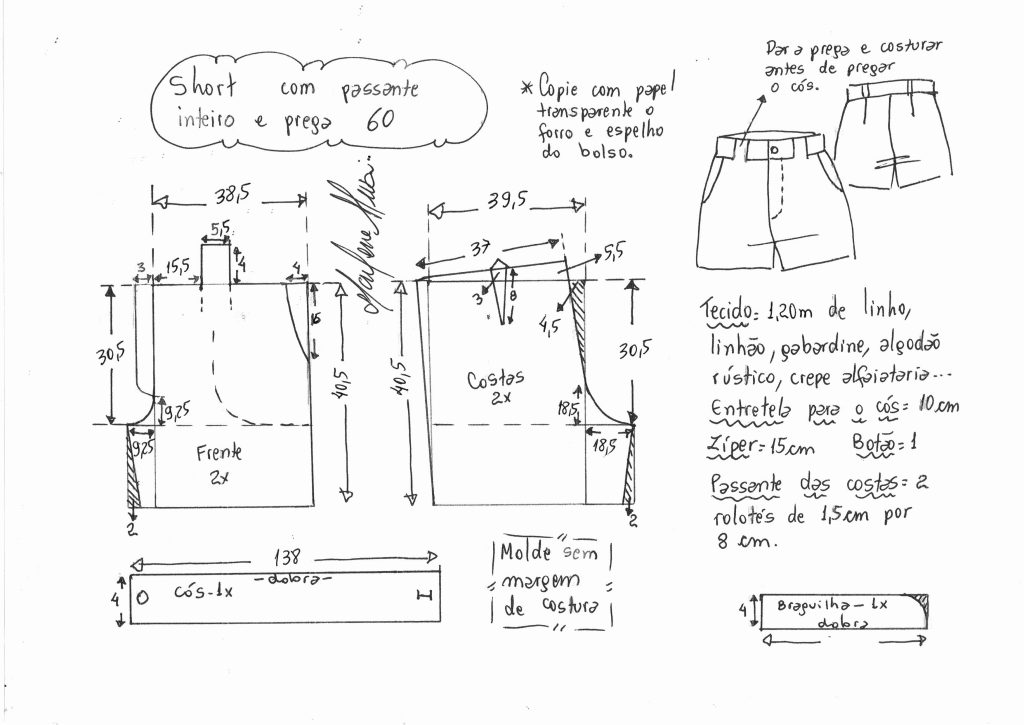 Short com passante
inteiro e prega 60
* Copie com papel
transparente o
forro e espelho
do bolso.
Dar a prega e costurar
antes de pregar
o cós.
38,5
5,5
4
3
15,5
4
15
30,5
40,5
9,25
9,25
Frente
2x
2
39,5
37
5,5
3
8
4,5
30,5
40,5
Costas
2x
18,5
18,5
2
Tecido= 1,20m de linho,
linhão, gabardine, algodão
rústico, crepe alfaiataria...
Entretela para o cós= 10cm
Zíper= 15cm Botão= 1
Passante das costas= 2
rolotés de 1,5cm por
8 cm.
138
-dobra-
4
cós-1x
Molde sem
margem
de costura
4
Braguilha- 1x
dobra